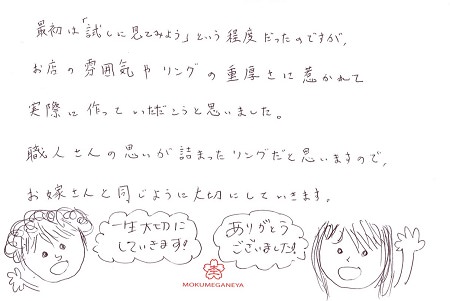 最初は「試しに見てみよう」という程度だったのですが、
お店の雰囲気やリングの重厚さに惹かれて
実際に作っていただこうと思いました。
職人さんの思いが詰まったリングだと思いますので、
お嫁さんと同じように大切にしていきます。
一生大切に
していきます!
ありがとう
ございました!!
MOKUMEGANEYA